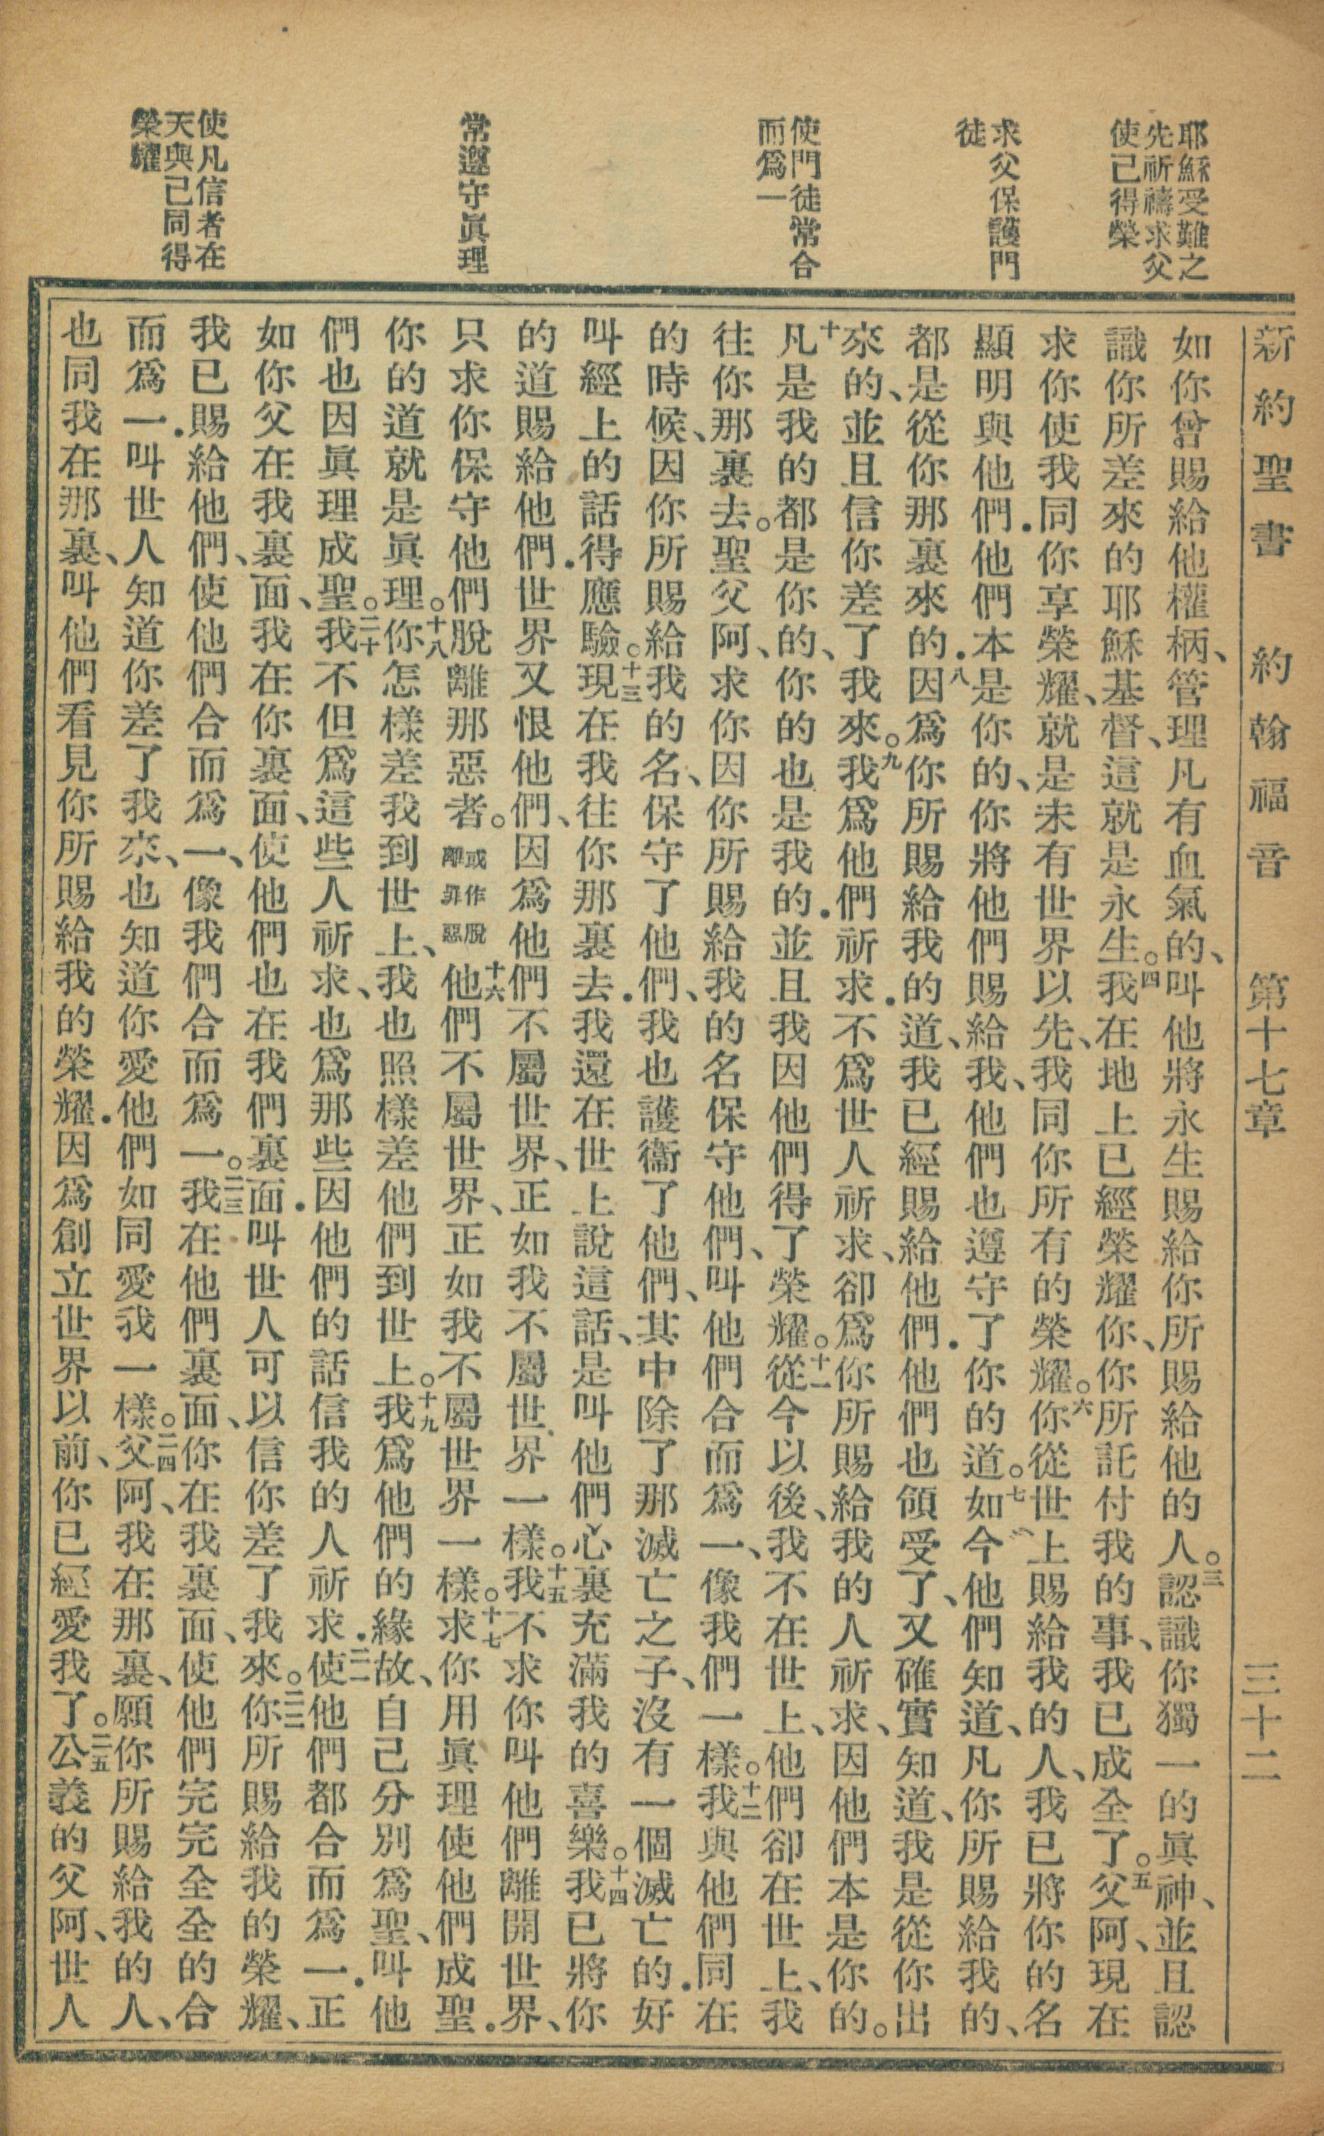 新約聖書 約翰福音 第十七章 三十二
耶穌受難之
先祈禱求父
使已得榮
求父保護門
徒
使門徒常合
而爲一
常遵守眞理
使凡信者在
天與已同得
榮耀
如你曾賜給他權柄、管理凡有血氣的、叫他將永生賜給你所賜給他的人。三認識你獨一的眞神、並且認
識你所差來的耶穌基督、這就是永生。四我在地上已經榮耀你、你所託付我的事、我已成全了。五父阿、現在
求你使我同你享榮耀、就是未有世界以先、我同你所有的榮耀。六你從世上賜給我的人、我已將你的名
顯明與他們．他們本是你的、你將他們賜給我、他們也遵守了你的道。七如今他們知道、凡你所賜給我的、
都是從你那裏來的．八因爲你所賜給我的道、我已經賜給他們．他們也領受了、又確實知道、我是從你出
來的、並且信你差了我來。九我爲他們祈求．不爲世人祈求、卻爲你所賜給我的人祈求、因他們本是你的。
十凡是我的都是你的、你的也是我的．並且我因他們得了榮耀。十一從今以後、我不在世上、他們卻在世上、我
往你那裏去。聖父阿、求你因你所賜給我的名保守他們、叫他們合而爲一、像我們一樣。十二我與他們同在
的時候、因你所賜給我的名、保守了他們、我也護衞了他們、其中除了那滅亡之子、沒有一個滅亡的．好
叫經上的話得應驗。十三現在我往你那裏去．我還在世上說這話、是叫他們心裏充滿我的喜樂。十四我已將你
的道賜給他們．世界又恨他們、因爲他們不屬世界、正如我不屬世界一樣。十五我不求你叫他們離開世界、
只求你保守他們脫離那惡者。或作脫離罪惡十六他們不屬世界、正如我不屬世界一樣。十七求你用眞理使他們成聖．
你的道就是眞理。十八你怎樣差我到世上、我也照樣差他們到世上。十九我爲他們的緣故、自己分別爲聖、叫他
們也因眞理成聖。二十我不但爲這些人祈求、也爲那些因他們的話信我的人祈求．二一使他們都合而爲一．正
如你父在我裏面、我在你裏面、使他們也在我們裏面．叫世人可以信你差了我來。二二你所賜給我的榮耀、
我已賜給他們、使他們合而爲一、像我們合而爲一。二三我在他們裏面、你在我裏面、使他們完完全全的合
而爲一．叫世人知道你差了我來、也知道你愛他們如同愛我一樣。二四父阿、我在那裏、願你所賜給我的人、
也同我在那裏、叫他們看見你所賜給我的榮耀．因爲創立世界以前、你已經愛我了。二五公義的父阿、世人